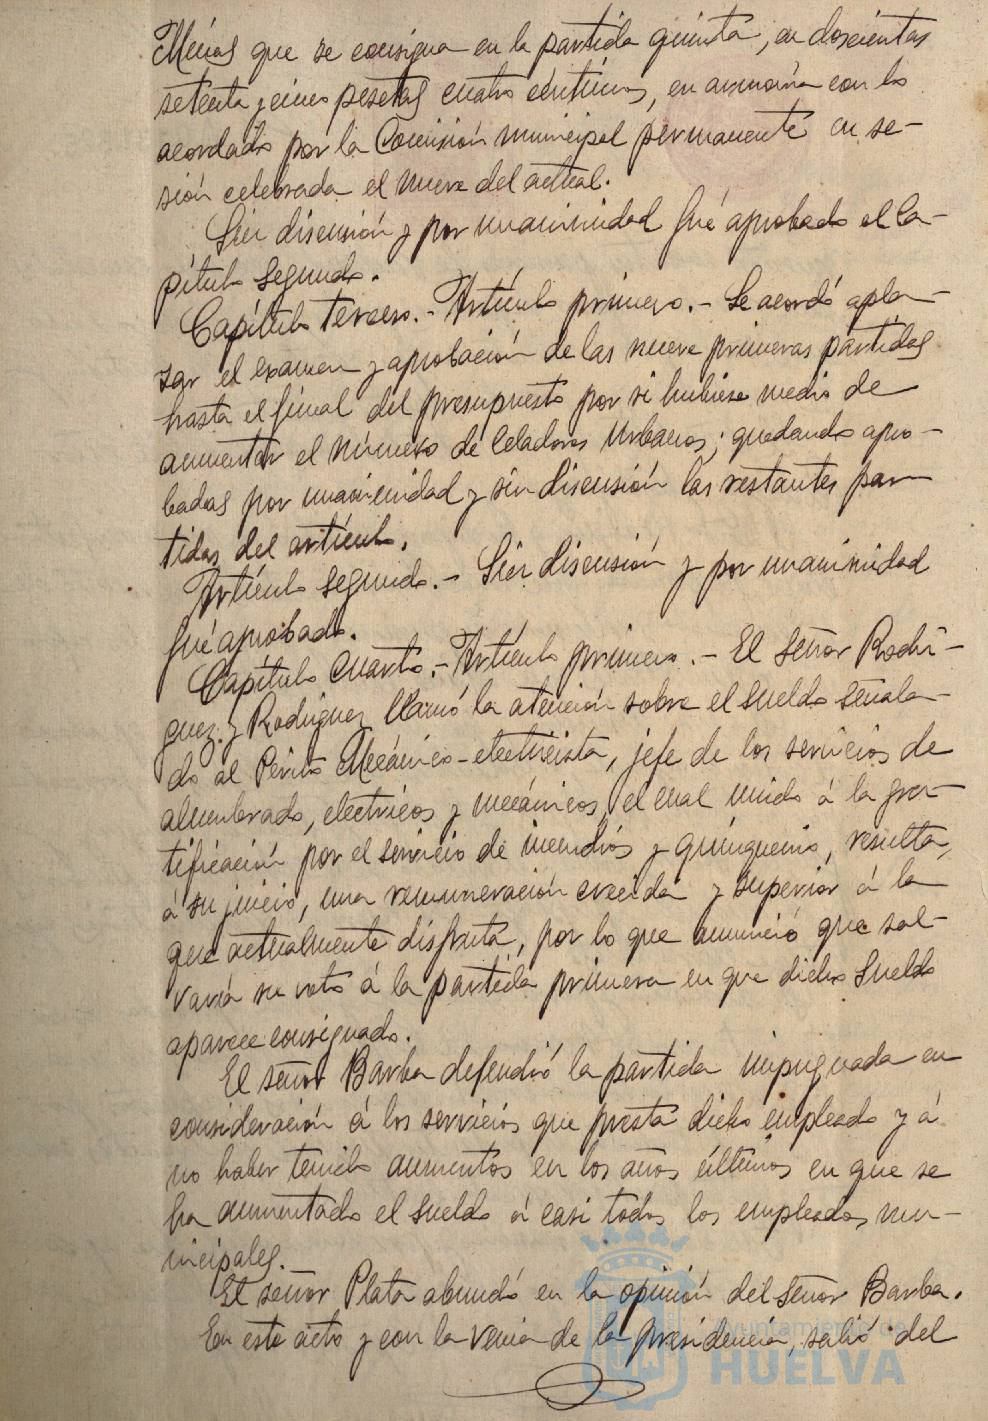 Minas que se consigna en la partida quinta, en doscientas
setenta y cinco pesetas cuatro céntimos, en armonía con lo
acordado por la Comisión municipal permanente en se-
sión celebrada el nueve del actual.
Sin discusión y por unanimidad fué aprobado el Ca-
pítulo segundo.
Capítulo tercero.- Artículo primero.- Se acordó apla-
zar el examen y aprobación de las nueve primeras partidas
hasta el final del presupuesto por si hubiese medio de
aumentar el número de Celadores Urbanos; quedando apro-
badas por unanimidad y sin discusión las restantes par-
tidas del artículo.
Artículo segundo.- Sin discusión y por unanimidad
fué aprobado.
Capítulo cuarto.- Artículo primero.- El señor Rodrí-
guez y Rodríguez llamó la atención sobre el sueldo señala-
do al Perito Mecánico-electricista, jefe de los servicios de
alumbrado, eléctricos y mecánicos, el cual unido á la gra-
tificación por el servicio de incendios y quinquenio, resulta,
á su juicio, una remuneración crecida y superior á la
que actualmente disfruta, por lo que anunció que sal-
varía su voto á la partida primera en que dicho sueldo
aparece consignado.
El señor Barba defendió la partida impugnada en
consideración á los servicios que presta dicho empleado y á
no haber tenido aumentos en los años últimos en que se
ha aumentado el sueldo á casi todos los empleados mu-
nicipales.
El señor Plata abundó en la opinión del señor Barba.
En este acto y con la venia de la presidencia, salió del
Ayuntamiento de
HUELVA